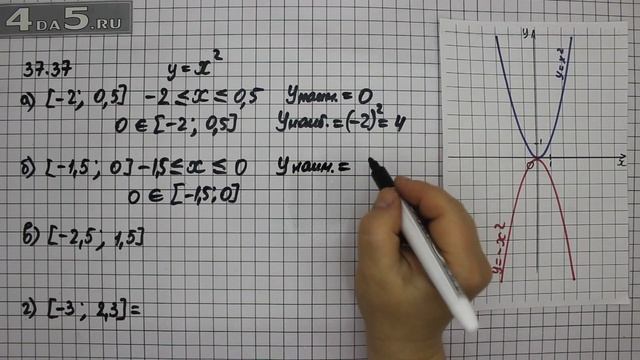 4DA5.RU
37.37 y = x²
а) [-2; 0,5] -2 ≤ x ≤ 0,5 Yнаим. = 0
0 ∈ [-2; 0,5] Yнаиб. = (-2)² = 4
б) [-1,5; 0] -1,5 ≤ x ≤ 0 Yнаим. =
0 ∈ [-1,5; 0]
в) [-2,5; 1,5]
г) [-3; 2,3] =
y
y = x²
1
0 1 x
y = -x²